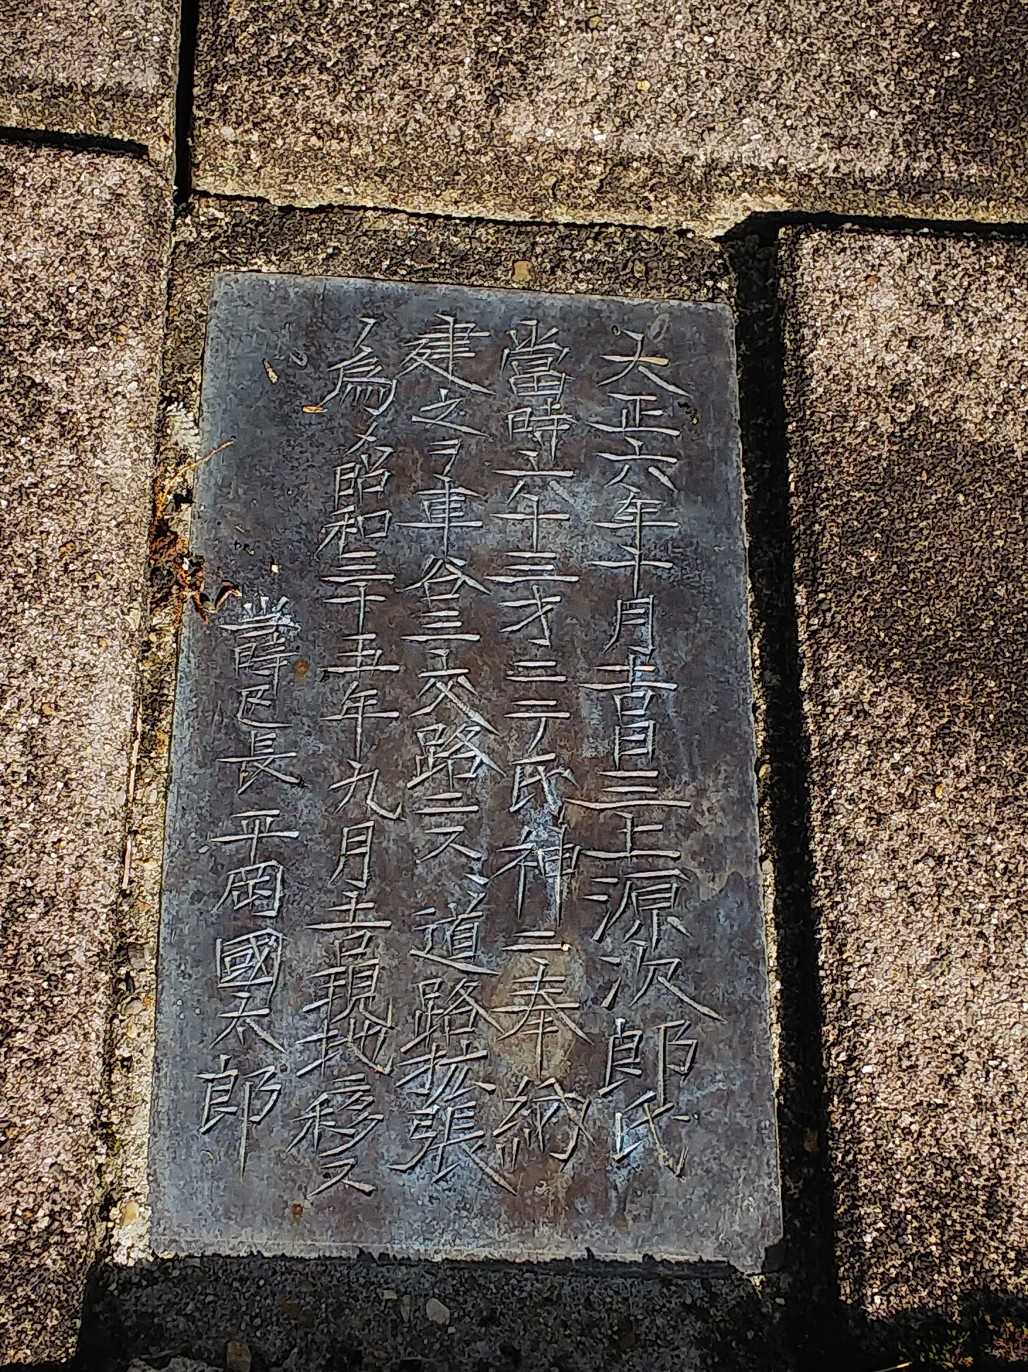 大正六年十月吉日三上源次郎氏
當時六十三才ニテ氏神ニ奉納
建之ヲ車谷三交路ニス道路拡張
為メ昭和三十五年九月吉現地移ス
當区長 平岡國太郎